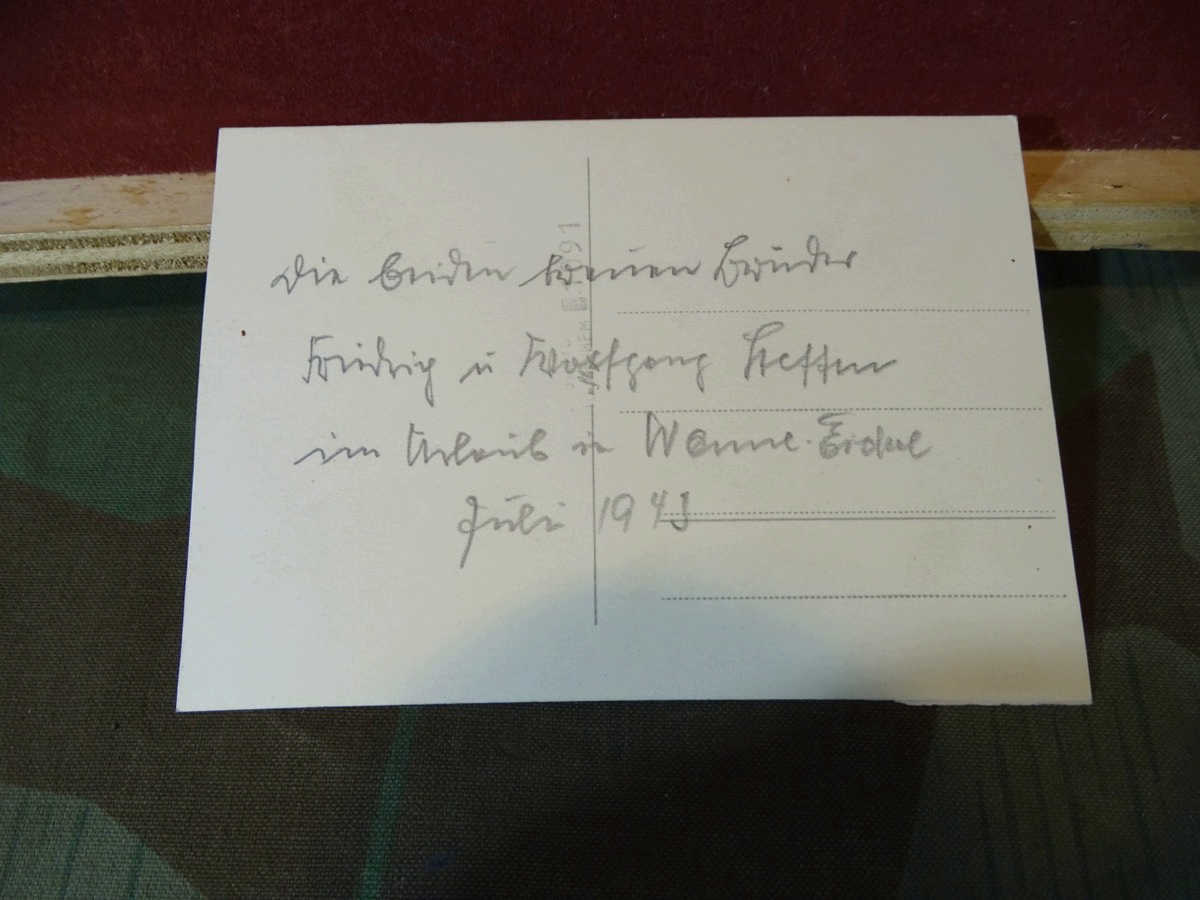 Die beiden treuen Brüder
Friedrich u Wolfgang Steffen
im Urlaub in Wanne-Eickel
Juli 1943